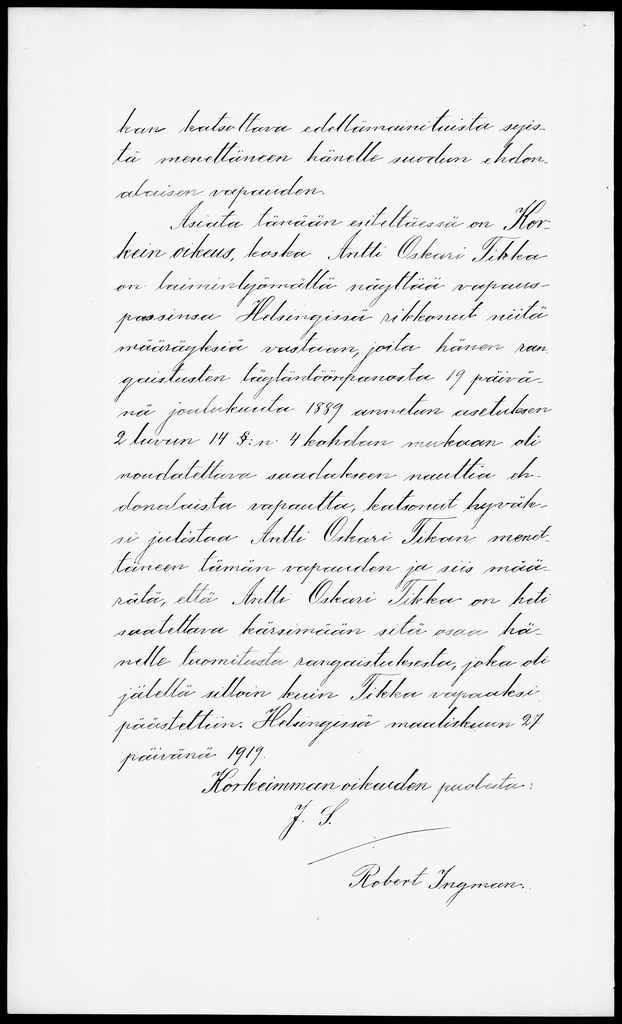 kan katsottava edellämainituista syis-
tä menettäneen hänelle suodun ehdon-
alaisen vapauden.
Asiata tänään esiteltäessä on Kor-
kein oikeus, koska Antti Oskari Tikka
on laiminlyömällä näyttää vapaus-
passinsa Helsingissä rikkonut niitä
määräyksiä vastaan, joita hänen ran-
gaistusten täytäntöönpanosta 19 päivä-
nä joulukuuta 1889 annetun asetuksen
2 luvun 14 §:n 4 kohdan mukaan oli
noudatettava saadakseen nauttia eh-
donalaista vapautta, katsonut hyväk-
si julistaa Antti Oskari Tikan menet-
täneen tämän vapauden ja siis mää-
rätä, että Antti Oskari Tikka on heti
saatettava kärsimään sitä osaa hä-
nelle tuomitusta rangaistuksesta, joka oli
jälellä silloin kuin Tikka vapaaksi
päästettiin. Helsingissä maaliskuun 27
päivänä 1919.
Korkeimman oikeuden puolesta:
J. S.
Robert Ingman.